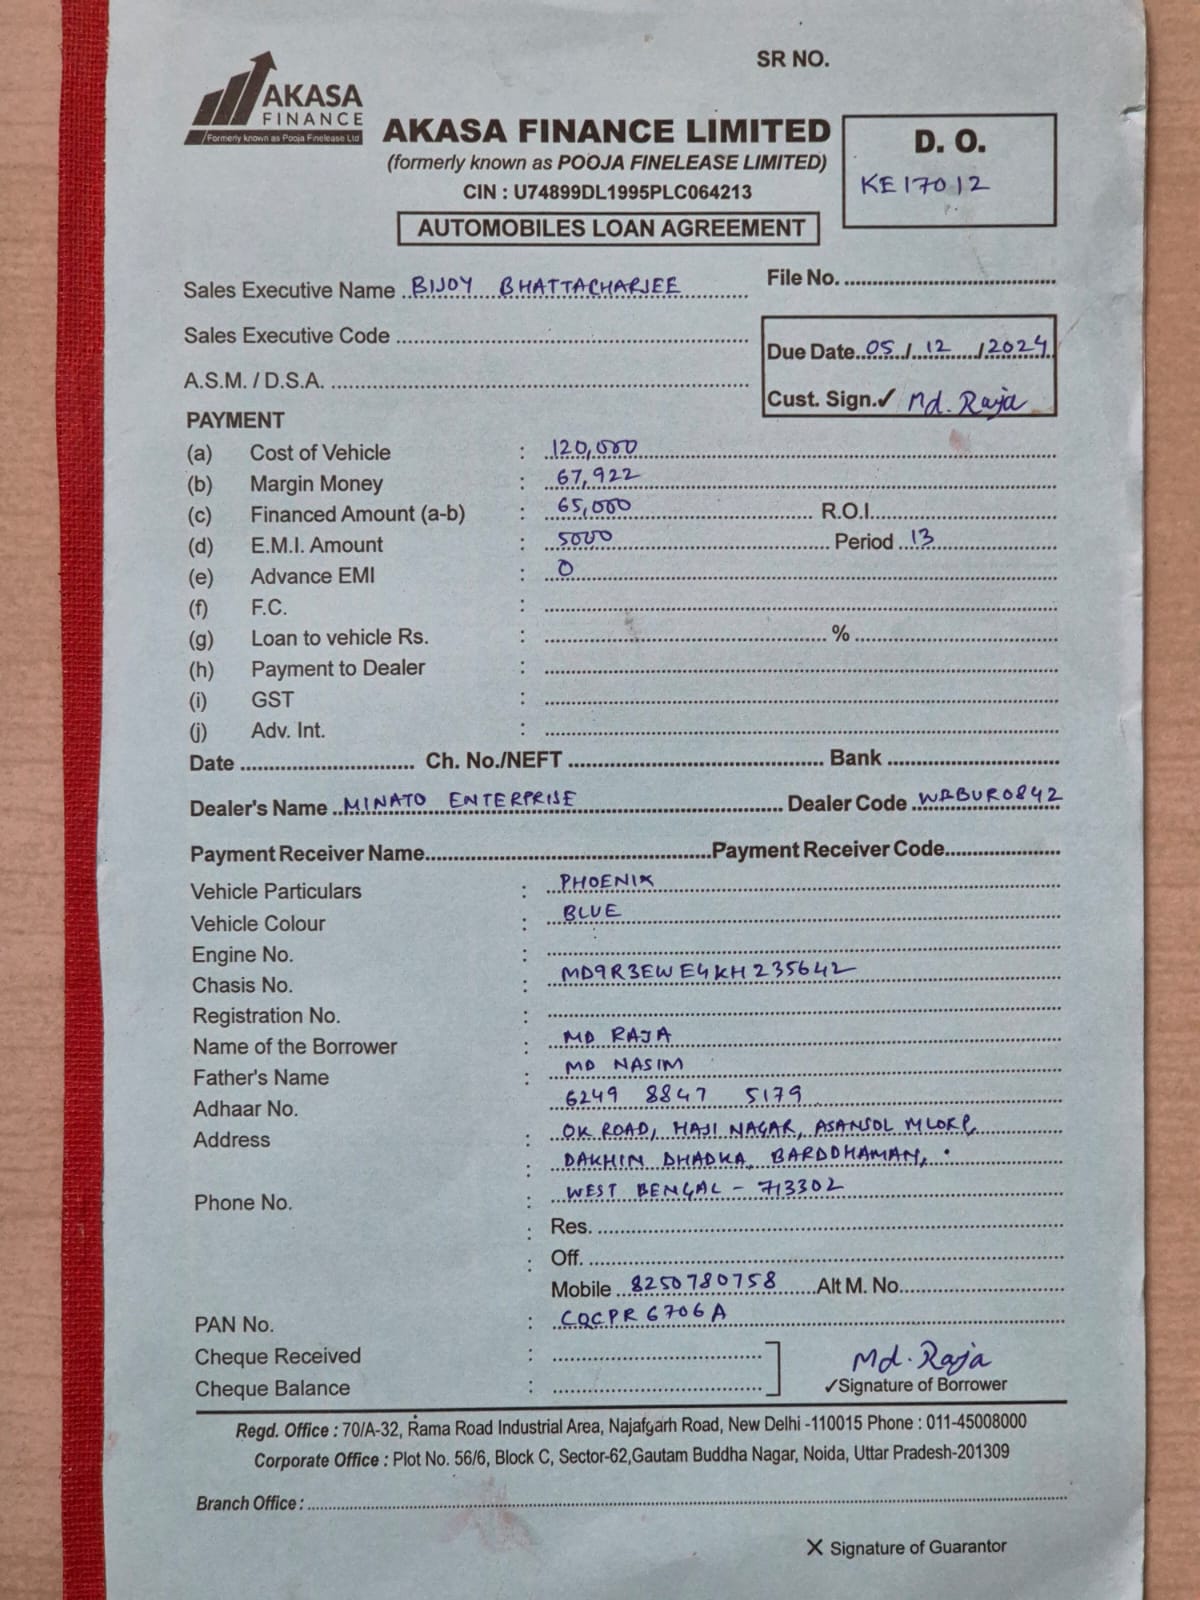 SR NO.
AKASA
FINANCE
Formerly known as Pooja Finelease Ltd
AKASA FINANCE LIMITED
(formerly known as POOJA FINELEASE LIMITED)
CIN : U74899DL1995PLC064213
AUTOMOBILES LOAN AGREEMENT
D. O.
KE17012
Sales Executive Name BIJOY BHATTACHARJEE
File No.
Sales Executive Code
Due Date 05 / 12 / 2024
A.S.M. / D.S.A.
Cust. Sign.✓ Md. Raja
PAYMENT
(a) Cost of Vehicle : 120,000
(b) Margin Money : 67,922
(c) Financed Amount (a-b) : 65,000 R.O.I.
(d) E.M.I. Amount : 5000 Period 13
(e) Advance EMI : 0
(f) F.C. :
(g) Loan to vehicle Rs. : %
(h) Payment to Dealer :
(i) GST :
(j) Adv. Int. :
Date Ch. No./NEFT Bank
Dealer's Name MINATO ENTERPRISE Dealer Code WBBUR0842
Payment Receiver Name Payment Receiver Code
Vehicle Particulars : PHOENIX
Vehicle Colour : BLUE
Engine No. :
Chasis No. : MD9R3EWE4KH235642
Registration No. :
Name of the Borrower : MD RAJA
Father's Name : MD NASIM
Adhaar No. 6249 8847 5179
Address : OK ROAD, HAJI NAGAR, ASANSOL
: DAKHIN DHADKA, BARDDHAMAN,
Phone No. : WEST BENGAL - 713302
: Res.
: Off.
Mobile 8250780758 Alt M. No.
PAN No. : CQCPR6706A
Cheque Received :
Cheque Balance :
Md. Raja
✓Signature of Borrower
Regd. Office : 70/A-32, Rama Road Industrial Area, Najafgarh Road, New Delhi -110015 Phone : 011-45008000
Corporate Office : Plot No. 56/6, Block C, Sector-62,Gautam Buddha Nagar, Noida, Uttar Pradesh-201309
Branch Office :
X Signature of Guarantor